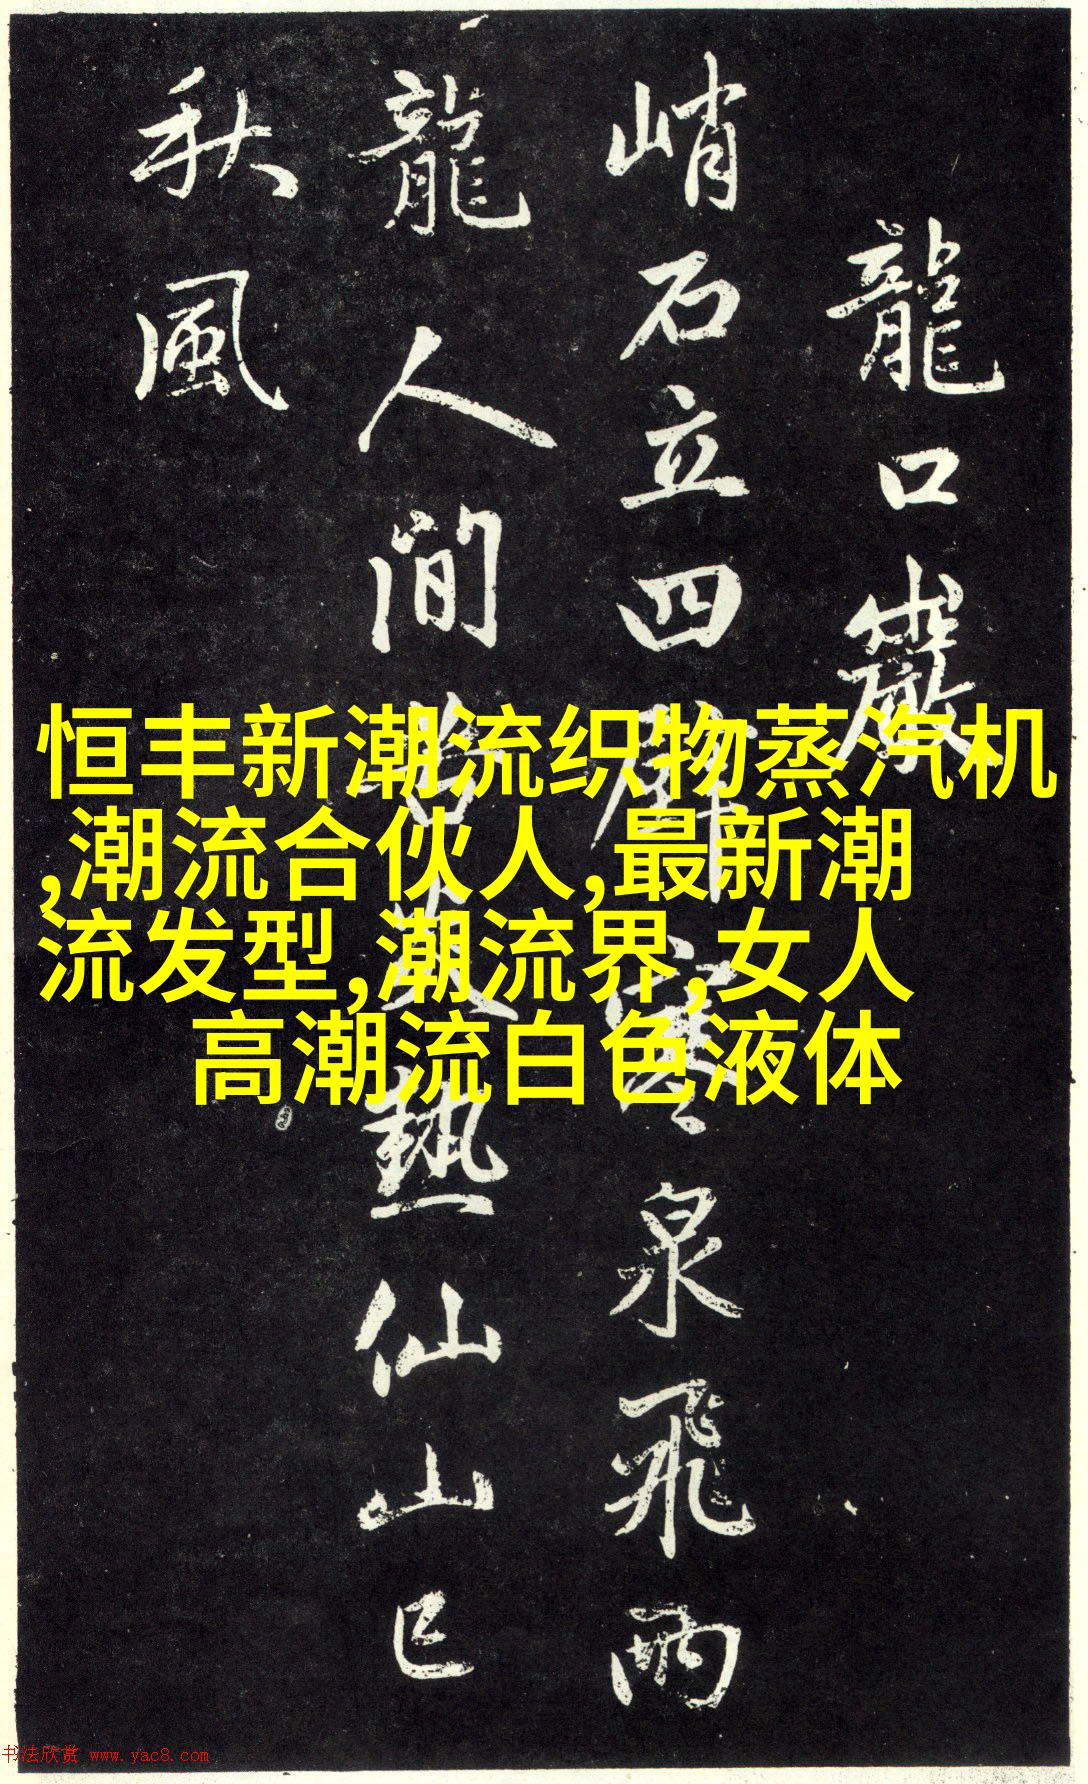 龍口巖
峭石立四壁寒泉飛雨
龍人間苦炎熱仙山已
秋風
恒丰新潮流织物蒸汽机
,潮流合伙人,最新潮
流发型,潮流界,女人
高潮流白色液体
书法欣赏 www.yac8.com